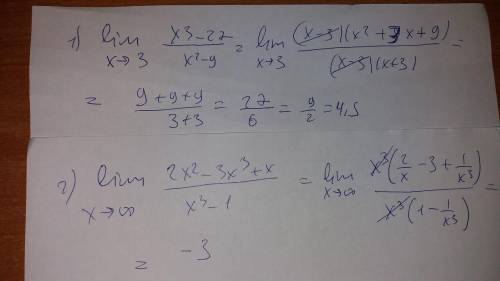 1) lim x→3 x3-27 / x²-9 = lim x→3 (x-3)(x²+3x+9) / (x-3)(x+3) =
= 9+9+9 / 3+3 = 27 / 6 = 9 / 2 = 4,5
2) lim x→∞ 2x²-3x³+x / x³-1 = lim x→∞ x³(2/x -3+ 1/x³) / x³(1- 1/x³) =
= -3